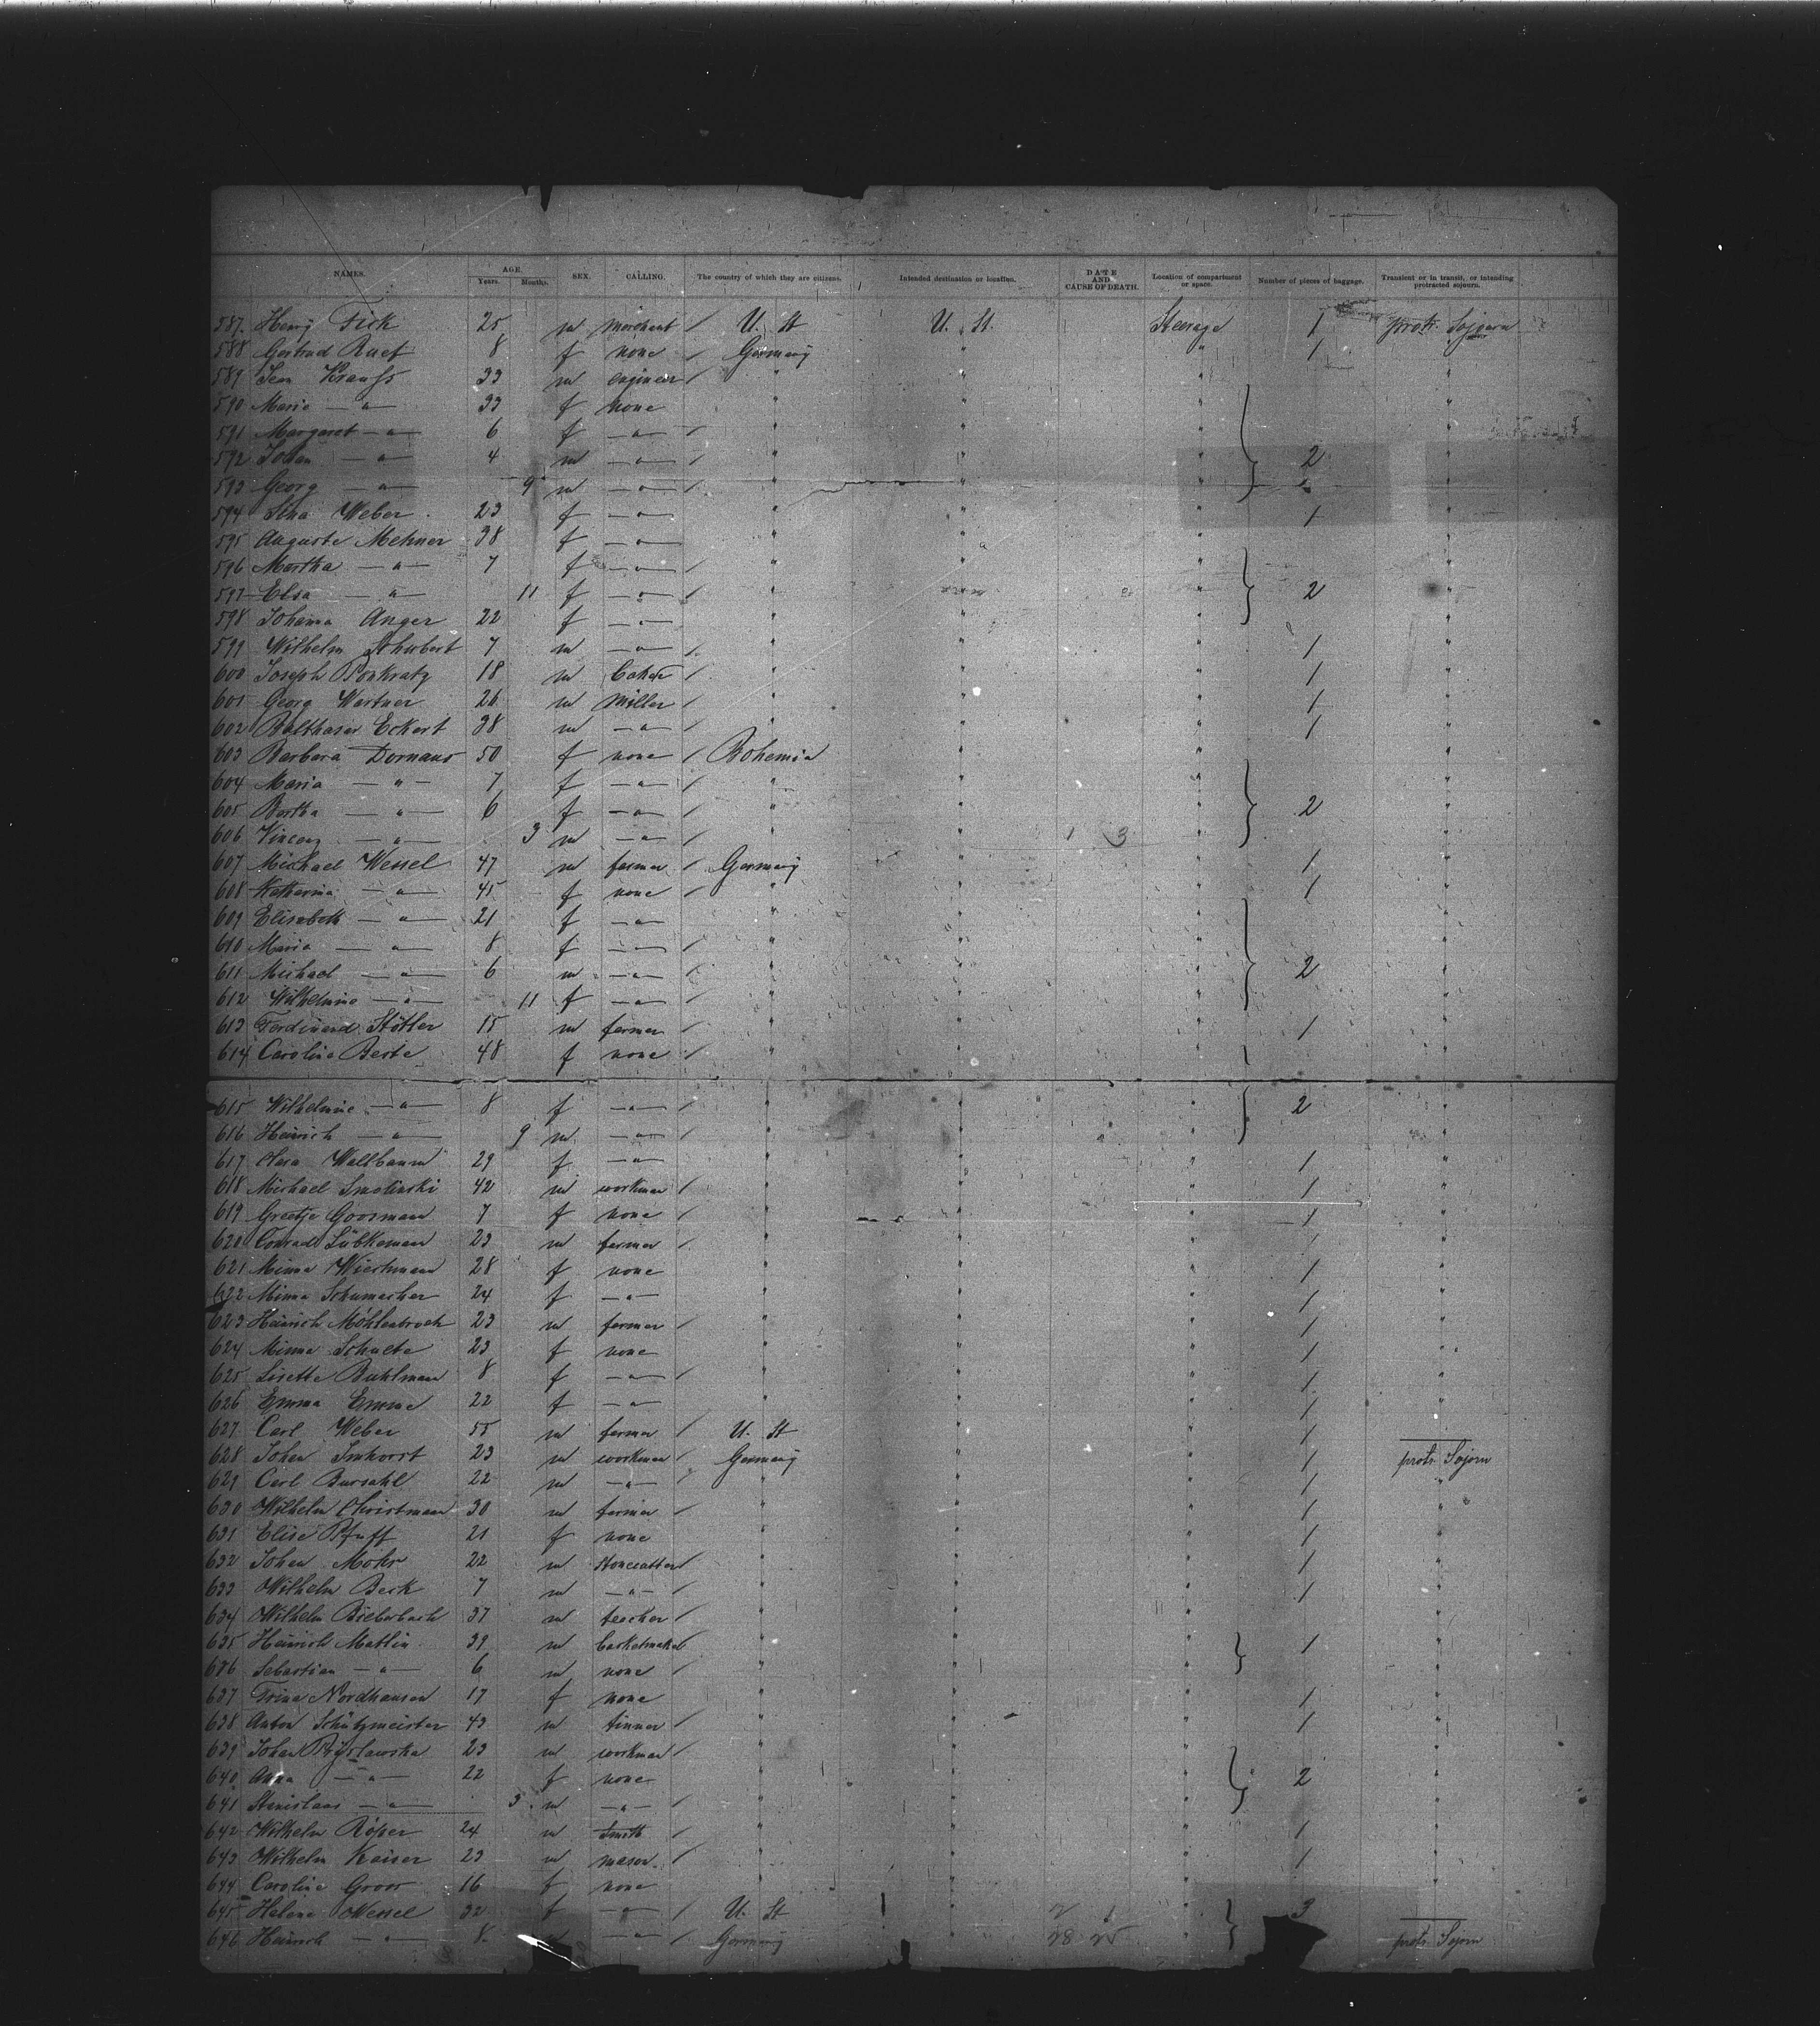 NAMES. AGE. Years. Months. SEX. CALLING. The country of which they are citizens. Intended destination or location. DATE AND CAUSE OF DEATH. Location of compartment or space. Number of pieces of baggage. Transient or in transit, or intending protracted sojourn.
587 Henry Fick 25 m merchant / U. St U. St. Steerage 1 protr. Sojourn
588 Gertrud Ruef 8 f none / Germany " " 1 "
589 Jean Krauss 33 m engineer / " " " "
590 Marie — " — 33 f none " " " "
591 Margaret — " — 6 f — " — / " " " "
592 Johan — " — 4 m — " — / " " " 2 "
593 Georg — " — 9 m — " — / " " " "
594 Lina Weber 23 f — " — " " " 1 "
595 Auguste Mehner 38 f — " — " " " "
596 Martha — " — 7 f — " — / " " " "
597 Elsa — " — 11 f — " — / " " " 2 "
598 Johanna Anger 22 f — " — " " " "
599 Wilhelm Schubert 7 m — " — / " " " 1 "
600 Joseph Ponkratz 18 m baker / " " " 1 "
601 Georg Wartner 26 m miller / " " " 1 "
602 Balthasar Eckert 38 m — " — / " " " 1 "
603 Barbara Dornaus 50 f none / Bohemia " " "
604 Maria — " — 7 f — " — / " " " "
605 Bertha — " — 6 f — " — / " " " 2 "
606 Vincenz — " — 3 m — " — / " " 1 3 " "
607 Michael Wessel 47 m farmer / Germany " " 1 "
608 Katharina — " — 45 f none / " " " 1 "
609 Elisabeth — " — 21 f — " — " " " "
610 Maria — " — 8 f — " — / " " " "
611 Michael — " — 6 m — " — / " " " 2 "
612 Wilhelmine — " — 11 f — " — / " " " "
613 Ferdinand Stötler 15 m farmer / " " " 1 "
614 Carolina Berte 48 f none / " " " "
615 Wilhelmine — " — 8 f — " — / " " " 2 "
616 Heinrich — " — 9 m — " — / " " " "
617 Clara Wallbaum 29 f — " — " " " 1 "
618 Michael Smolinski 42 m workman / " " " 1 "
619 Greetje Goosmann 7 f none / " " " 1 "
620 Conrad Lübkeman 23 m farmer / " " " 1 "
621 Minna Wiechmann 28 f none " " " 1 "
622 Minna Schumacher 24 f — " — " " " 1 "
623 Heinrich Möhlenbrock 23 m farmer / " " " 1 "
624 Minna Schulte 23 f none " " " 1 "
625 Lisette Buhlman 8 f — " — / " " " 1 "
626 Emma Emme 22 f — " — " " " 1 "
627 Carl Weber 55 m farmer / U. St " " 1
628 Johan Imhorst 23 m workman / Germany " " 1 protr. Sojorn
629 Carl Bursahl 22 m — " — / " " " 1 "
630 Wilhelm Christmann 30 m farmer / " " " 1 "
631 Elise Pfuff 21 f none " " " 1 "
632 Johan Mohr 22 m stonecutter / " " " 1 "
633 Wilhelm Beck 7 m — " — / " " " 1 "
634 Wilhelm Bieberbach 37 m teacher / " " " "
635 Heinrich Matlin 39 m basketmaker / " " " 1 "
636 Sebastian — " — 6 m none / " " " "
637 Trina Nordhausen 17 f none " " " 1 "
638 Anton Schützmeister 43 m tinner / " " " 1 "
639 Johan Pryslawska 23 m workman / " " " "
640 Anna — " — 22 f none " " " 2 "
641 Stanislaus — " — 3 m — " — / " " " "
642 Wilhelm Röper 24 m Smith / " " " 1 "
643 Wilhelm Kaiser 23 m mason / " " " 1 "
644 Caroline Gross 16 f none " " " "
645 Helene Wessel 32 f — " — / U. St " 2 1 " 3
646 Heinrich — " — 8 m — " — / Germany " 28 25 " protr. Sojorn